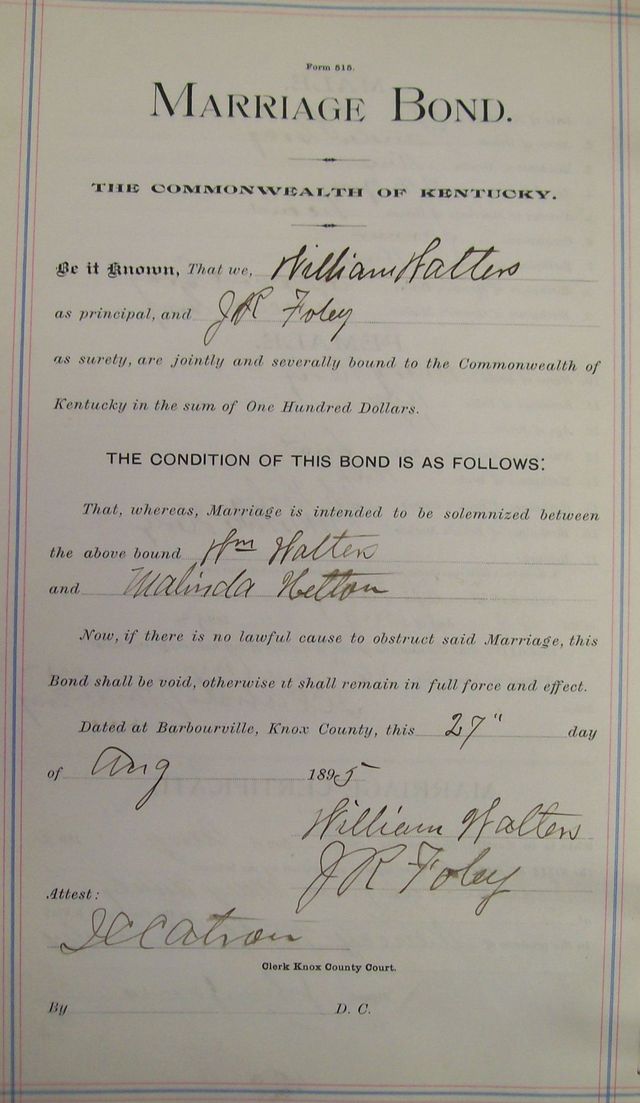 Form 515.
MARRIAGE BOND.
THE COMMONWEALTH OF KENTUCKY.
Be it Known, That we, William Walters
as principal, and J R Foley
as surety, are jointly and severally bound to the Commonwealth of
Kentucky in the sum of One Hundred Dollars.
THE CONDITION OF THIS BOND IS AS FOLLOWS:
That, whereas, Marriage is intended to be solemnized between
the above bound Wm Walters
and Malinda Helton
Now, if there is no lawful cause to obstruct said Marriage, this
Bond shall be void, otherwise it shall remain in full force and effect.
Dated at Barbourville, Knox County, this 27" day
of Aug 1895
William Walters
J R Foley
Attest:
Catron
Clerk Knox County Court.
By D. C.